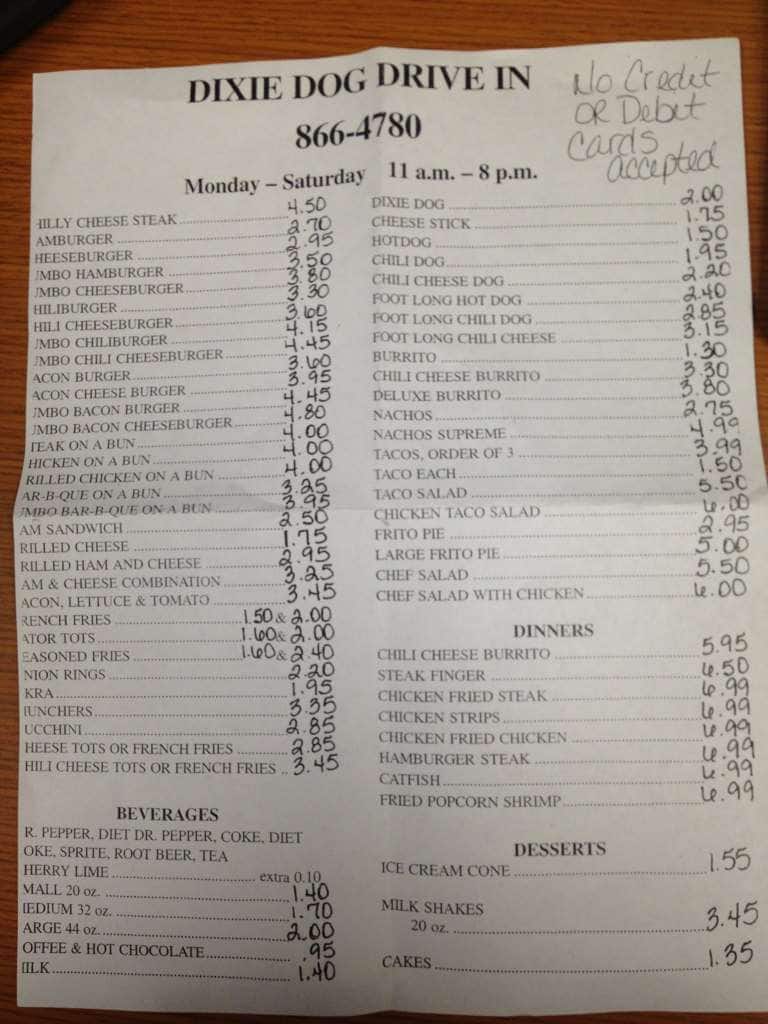 DIXIE DOG DRIVE IN
866-4780
No Credit
OR Debit
Cards
accepted
Monday – Saturday 11 a.m. – 8 p.m.
HILLY CHEESE STEAK 4.50
AMBURGER 2.70
HEESEBURGER 2.95
JMBO HAMBURGER 3.50
JMBO CHEESEBURGER 3.80
HILIBURGER 3.30
HILI CHEESEBURGER 3.60
JMBO CHILIBURGER 4.15
JMBO CHILI CHEESEBURGER 4.45
ACON BURGER 3.60
ACON CHEESE BURGER 3.95
JMBO BACON BURGER 4.45
JMBO BACON CHEESEBURGER 4.80
TEAK ON A BUN 4.00
HICKEN ON A BUN 4.00
RILLED CHICKEN ON A BUN 4.00
AR-B-QUE ON A BUN 3.25
JMBO BAR-B-QUE ON A BUN 3.95
AM SANDWICH 2.50
RILLED CHEESE 1.75
RILLED HAM AND CHEESE 2.95
AM & CHEESE COMBINATION 3.25
ACON, LETTUCE & TOMATO 3.45
RENCH FRIES 1.50 & 2.00
ATOR TOTS 1.60 & 2.00
EASONED FRIES 1.60 & 2.40
NION RINGS 2.20
KRA 1.95
UNCHERS 3.35
UCCHINI 2.85
HEESE TOTS OR FRENCH FRIES 2.85
HILI CHEESE TOTS OR FRENCH FRIES .. 3.45
BEVERAGES
R. PEPPER, DIET DR. PEPPER, COKE, DIET
OKE, SPRITE, ROOT BEER, TEA
HERRY LIME extra 0.10
MALL 20 oz. 1.40
EDIUM 32 oz. 1.70
ARGE 44 oz. 2.00
OFFEE & HOT CHOCOLATE .95
ILK 1.40
DIXIE DOG 2.00
CHEESE STICK 1.75
HOTDOG 1.50
CHILI DOG 1.95
CHILI CHEESE DOG 2.20
FOOT LONG HOT DOG 2.40
FOOT LONG CHILI DOG 2.85
FOOT LONG CHILI CHEESE 3.15
BURRITO 1.30
CHILI CHEESE BURRITO 3.30
DELUXE BURRITO 3.80
NACHOS 2.75
NACHOS SUPREME 4.99
TACOS, ORDER OF 3 3.99
TACO EACH 1.50
TACO SALAD 5.50
CHICKEN TACO SALAD 6.00
FRITO PIE 2.95
LARGE FRITO PIE 5.00
CHEF SALAD 5.50
CHEF SALAD WITH CHICKEN 6.00
DINNERS
CHILI CHEESE BURRITO 5.95
STEAK FINGER 6.50
CHICKEN FRIED STEAK 6.99
CHICKEN STRIPS 6.99
CHICKEN FRIED CHICKEN 6.99
HAMBURGER STEAK 6.99
CATFISH 6.99
FRIED POPCORN SHRIMP 6.99
DESSERTS
ICE CREAM CONE 1.55
MILK SHAKES
20 oz. 3.45
CAKES 1.35